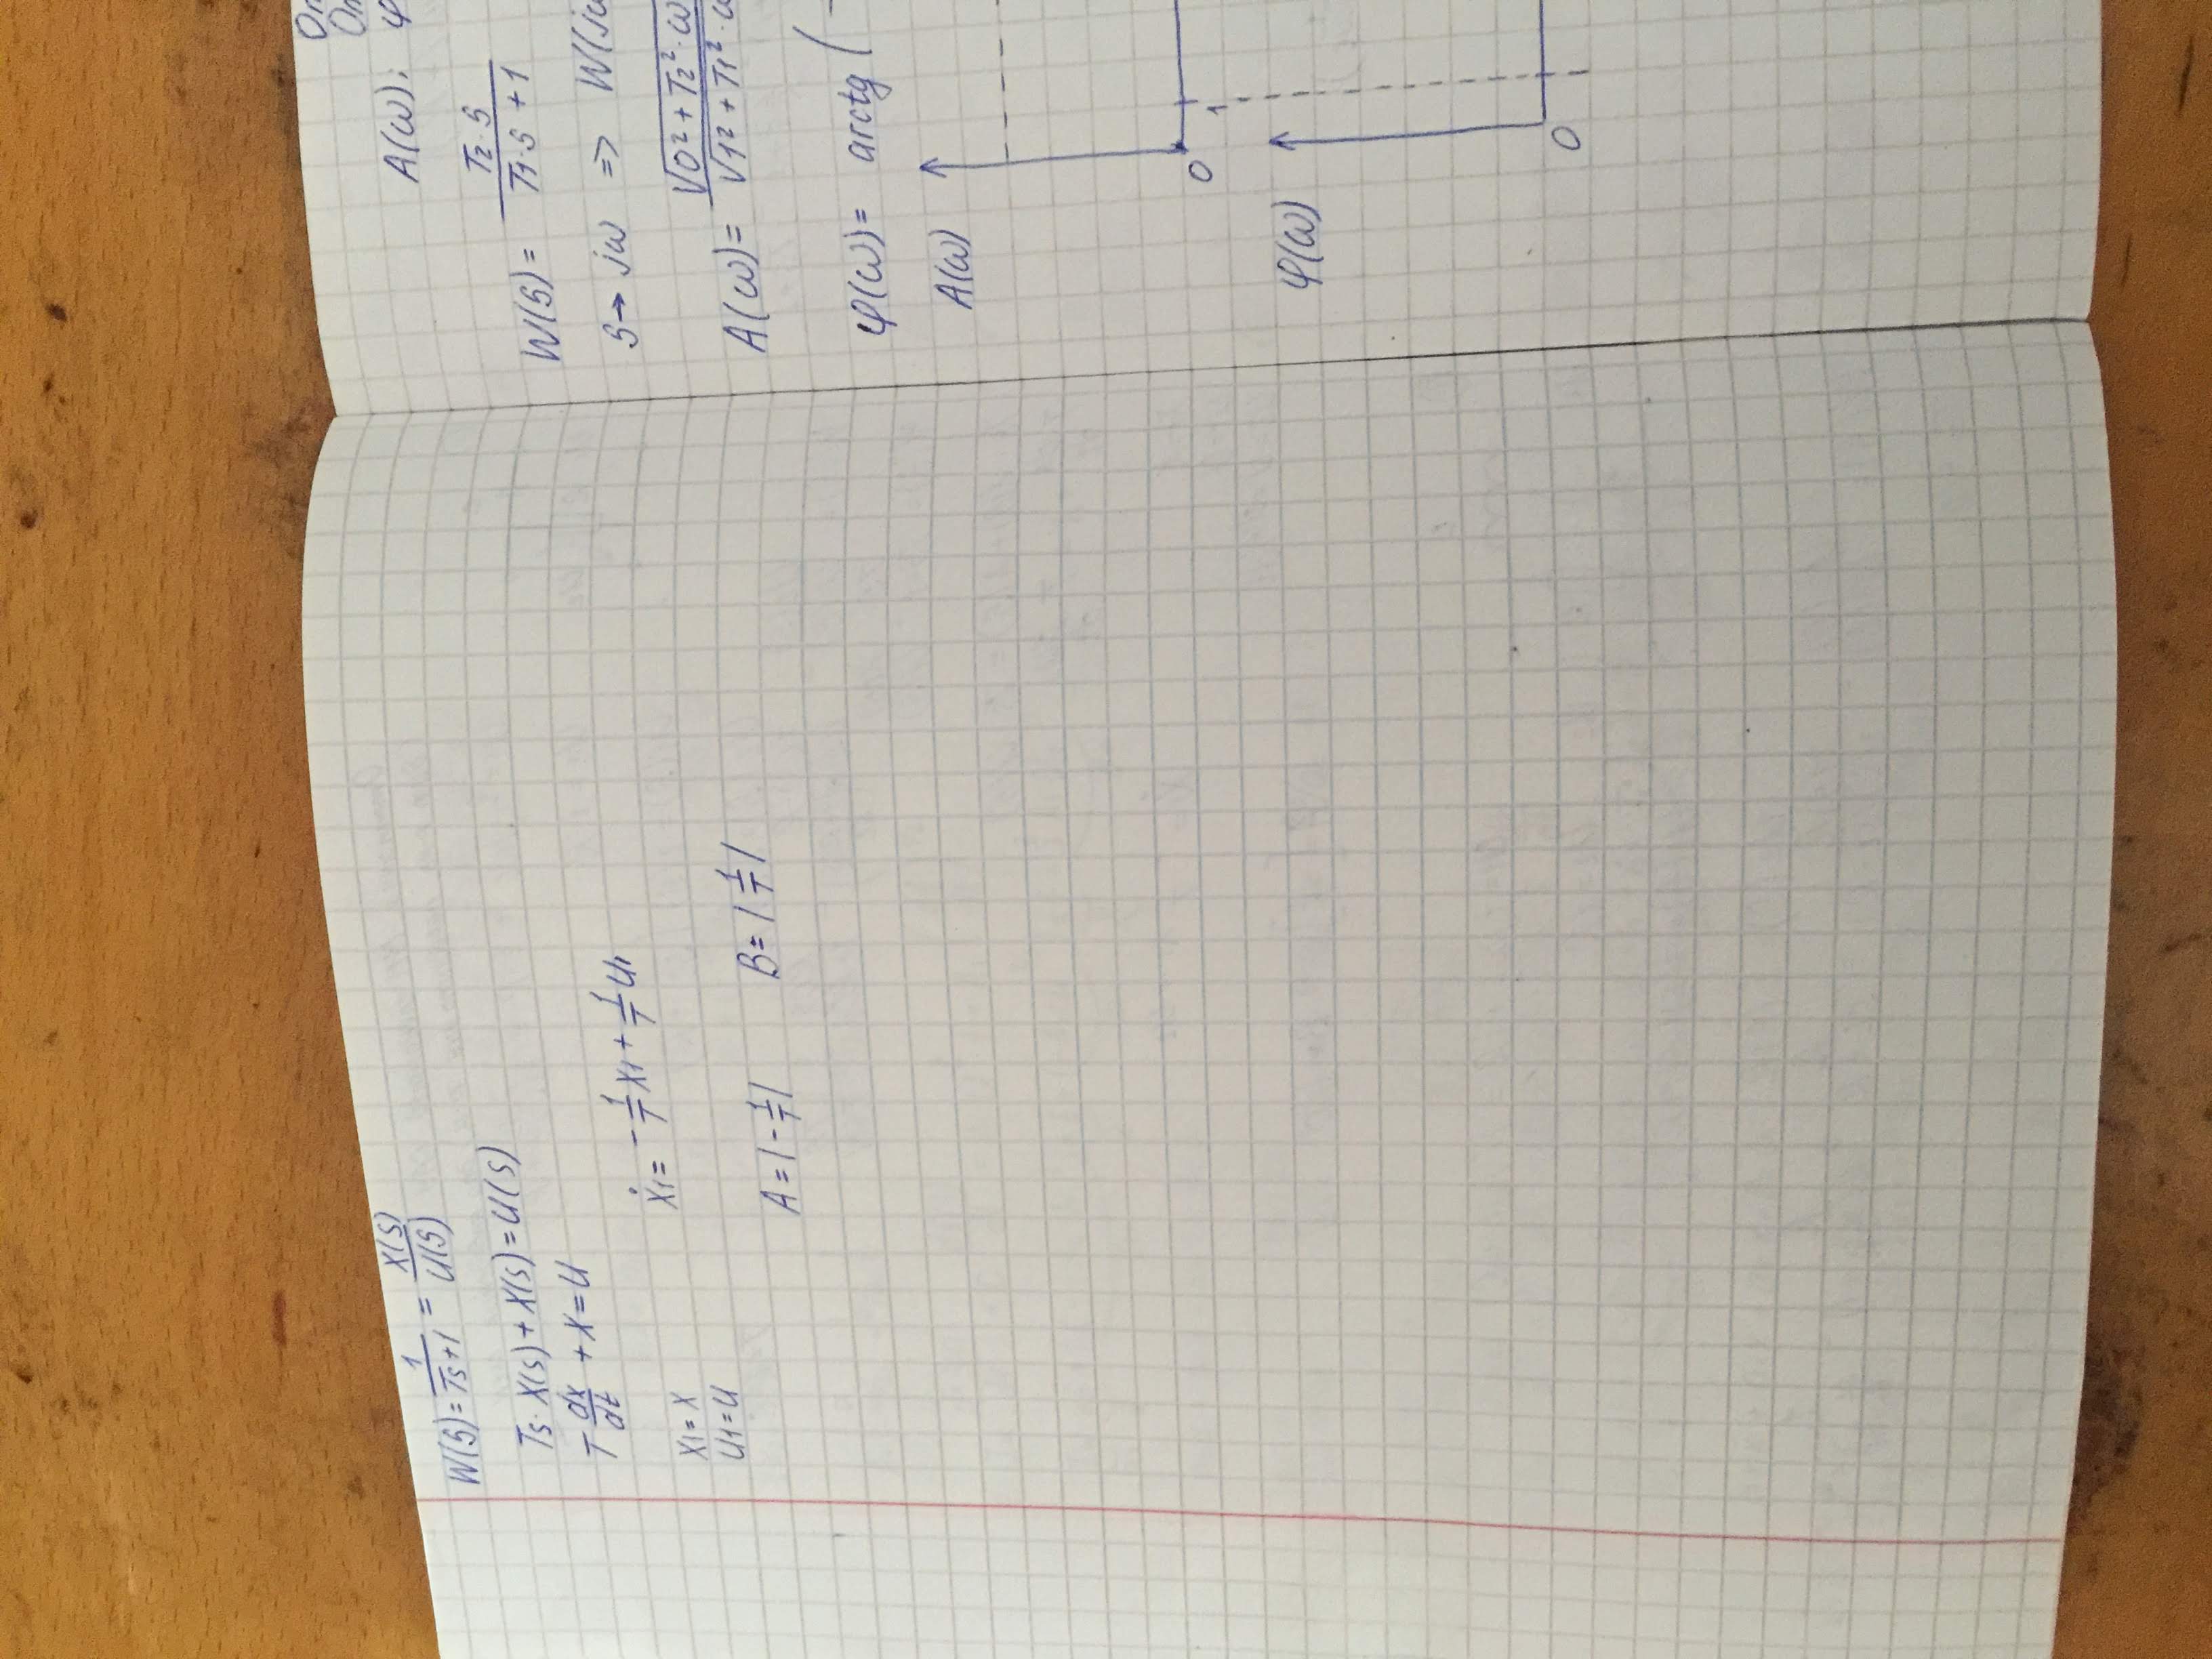 W(S)= 1/(Ts+1) = X(S)/U(S)
Ts·X(s)+X(s)=U(s)
T dx/dt +X=U
ẋ1= -1/T X1+ 1/T U1
X1=X
U1=U
A=|-1/T| B=|1/T|
A(ω); φ
W(S)= T2·S/(T1·S +1)
S→ jω => W(jω
A(ω)= √0²+T2²·ω / √1²+T1²·ω
φ(ω)= arctg (
A(ω)
0
1
φ(ω)
0